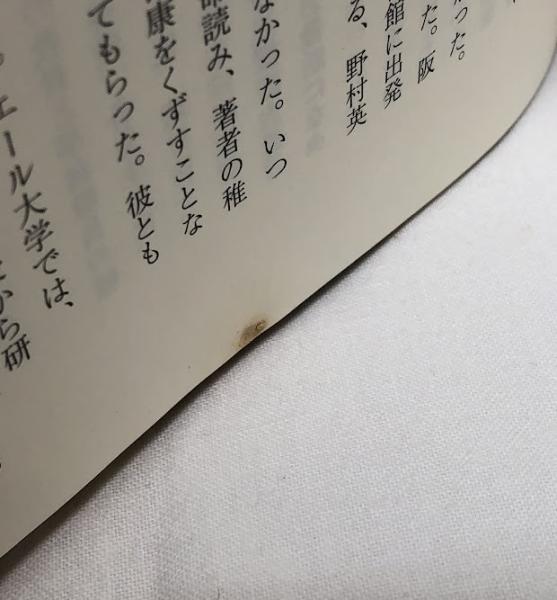 った。
た。阪
館に出発
る、野村英
なかった。いつ
読み、著者の稚
康をくずすことな
てもらった。彼とも
エール大学では、
から研